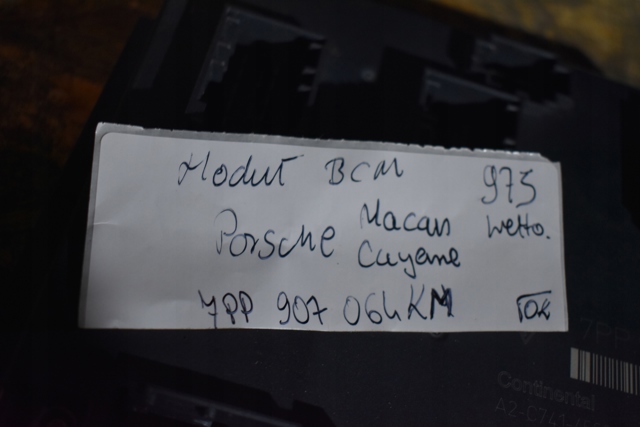 Moduł BCM 975
Porsche Macan netto.
Cayenne
7PP 907 064KM TOK
7PP
Continental
A2-C741